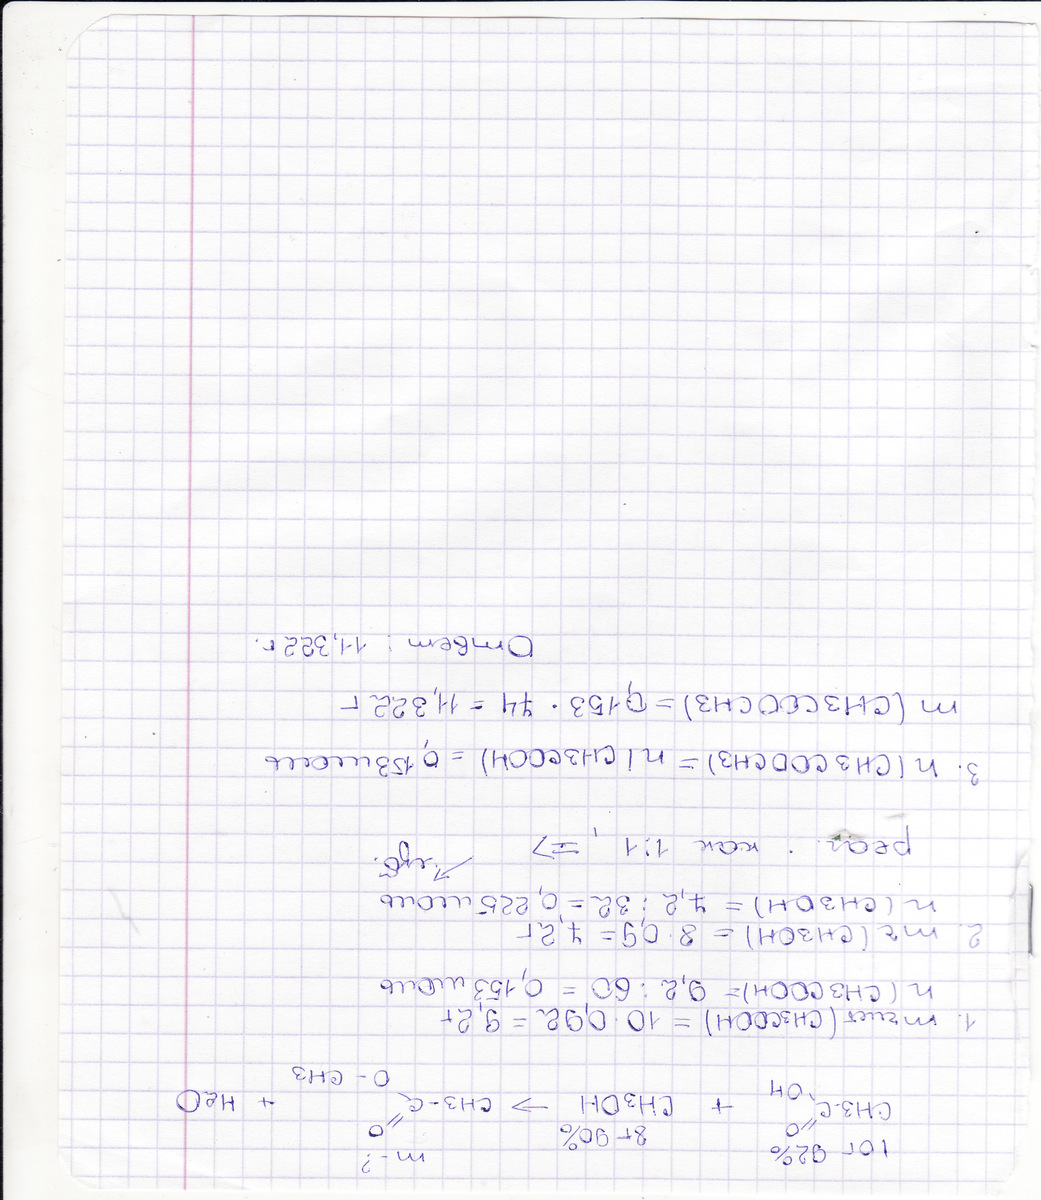 10г 92% 8г 90% m-?
CH3-C=O OH + CH3OH → CH3-C=O O-CH3 + H2O
1. mчист(CH3COOH) = 10·0,92 = 9,2г
n(CH3COOH) = 9,2 : 60 = 0,153моль
2. mч(CH3OH) = 8·0,9 = 7,2г
n(CH3OH) = 7,2 : 32 = 0,225моль
реаг. как 1:1, => ↗изб.
3. n(CH3COOCH3) = n(CH3COOH) = 0,153моль
m(CH3COOCH3) = 0,153 · 74 = 11,322г
Ответ: 11,322г.